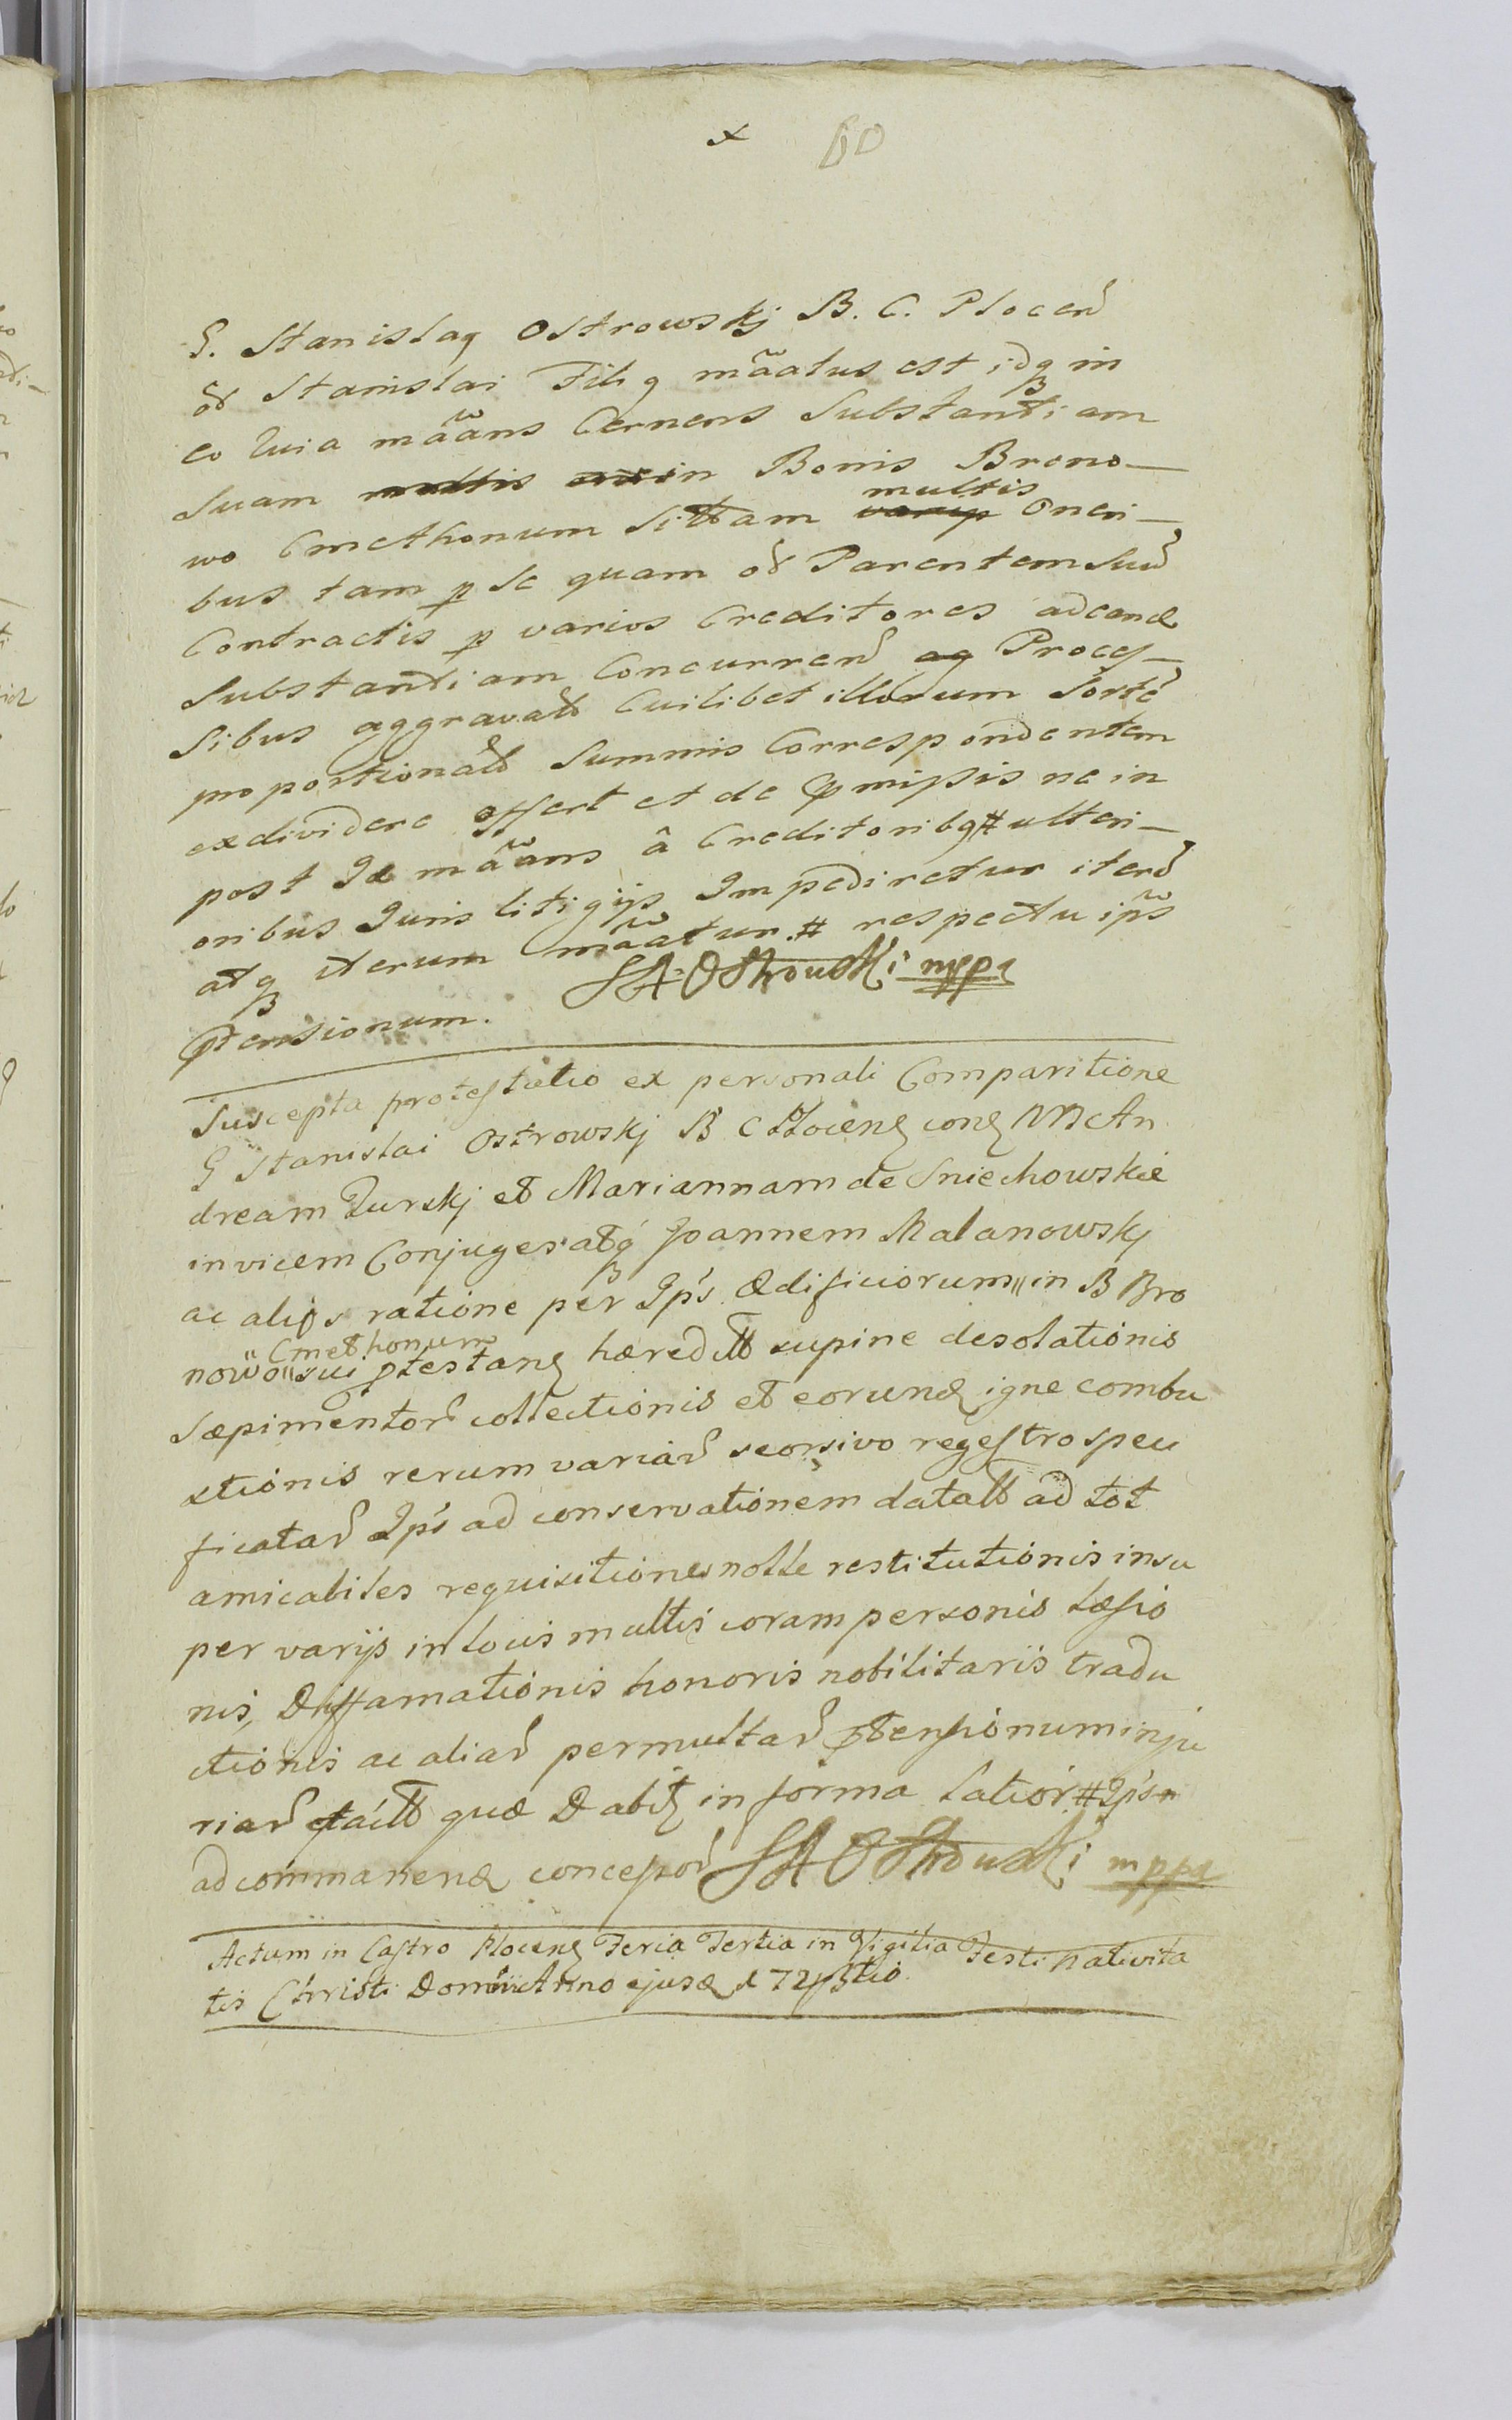 x 60
G. Stanislaꝯ Ostrowskj B. C. Plocen̄
oĺ Stanislai Filiꝯ mãatus est idqꝫ in
eo quia mãans Cernens Substantiam
Suam multis in Bonis Brono—
wo Cmethonum Sittam multis varijs Oneri—
bus tam ꝑ se quam oĺ Parentem Suū
Contractis ꝑ varios Creditores ad eand
Substantiam Concurren̄ ag Proces—
sibus aggravatt Cuilibet illorum Sortē
proportionatt Summis Correspondentem
exdividere offert et de p̄missis ne in
post Id mãans â Creditoribꝯ # ulteri—
oribus Juris litigijs Impediretur iterū
atqꝫ iterum mãatur. # respectu ip̄s
p̄tensionum. St. Ostrowski mppa
Suscepta protestatio ex personali Comparitione
G Stanislai Ostrowskj B C Plocen con MM An
dream Turskj et Mariannam de Sniechowskie
invicem Conjuges atqꝫ Joannem Malanowskj
ac alios ratione per Ip̄s Ædificiorum || in B Bro
nowo || Cmethonum sui p̄testan hæreditt supine desolationis
Sæpimentor̄ collectionis et eorund igne combu
stionis rerum variar̄ seorsivo regestro speci
ficatar̄ Ip̄s ad conservationem datatt ad tot
amicabiles requisitiones nolle restitutionis insu
per varijs in locis multis coram personis læsio
nis, Diffamationis honoris nobilitaris tradu
ctionis ac aliar̄ permultar̄ p̄tensionum inju
riar̄ quæ Dabit in forma latior # Ip̄s
ad commanend concessor̄ St Ostrowski mppa
Actum in Castro Plocen Feria Tertia in Vigilia Festi Nativita
tis Christi Domini Anno ejusd 172